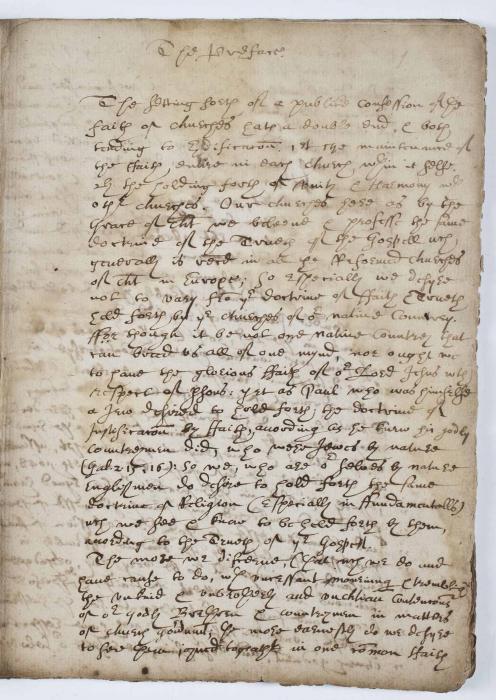 The Preface.
The setting forth of a publick confession of the
faith of churches hath a double end, & both
tending to Edificacon; 1t the maintenance of
the ffaith entire in each church within it selfe,
2ly the holding forth of Vnity & Harmony with
othr churches. Our churches here as by the
Grace of Cht we beleeue & professe the same
doctrine of the Trueth of the Gospell wch
generally is recd in all ye Reformed churches
of Cht in Europe; so especially we desyre
not to vary fro ye doctrine of ffaith & Trueth
held forth by ye churches of or native Country.
ffor though it be not one native Countrey that
can breed vs all of one mynd; nor ought we
to haue the glorious ffaith of or Lord Jesus with
respect of psons: yet as Paul who was himselfe
a Jew desired to hold forth, the doctrine of
Justificacon by ffaith, according as he knew his godly
countrimen did, who were Jewes by nature
(Gal: 2. 15, 16): so we, who are or selves by nature
Englishmen do desyre to hold forth the same
doctrine of Religion (especially in ffundamentalls)
wch we see & know to be held forth by them,
according to the Trueth of ye Gospell.
The more we discerne, (that wch we do and
haue cause to do, wth incessant mourning & trembling)
the vnkind & vnbrotherly and vnchristian Contencons
of or godly Brethren & countrymen in matters
of church govermt; ye more earnestly do we desyre
to see them joyned together in one comon ffaith